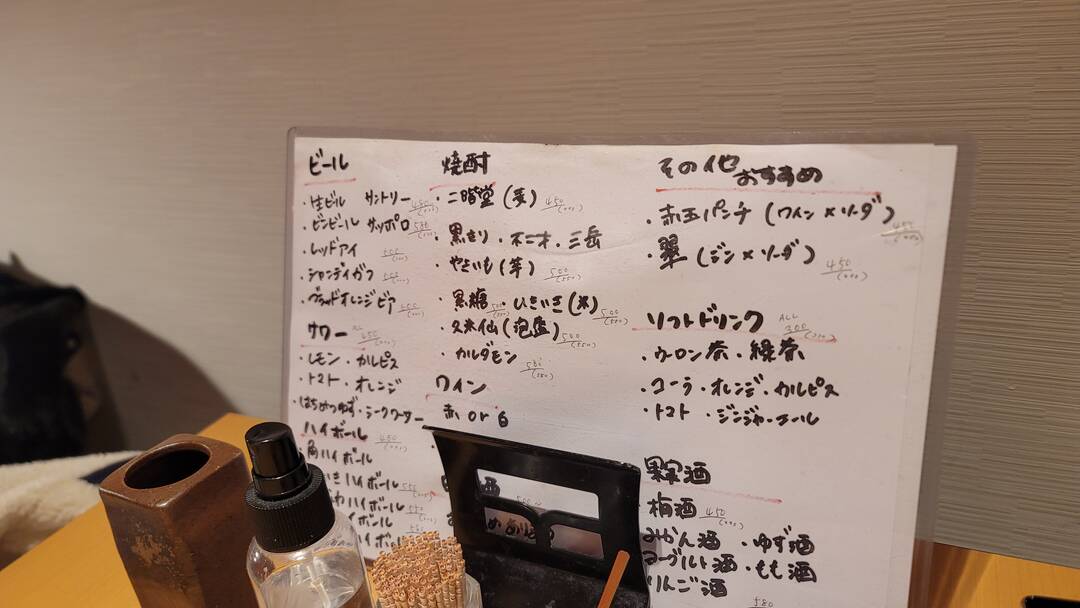 ビール
・生ビル サントリー 450
・ビンビール サッポロ 580
・レッドアイ
・シャンディガフ
・ブラッドオレンジビア
サワー ALL 450
・レモン・カルピス
・トマト・オレンジ
・はちみつゆず・シークワーサー
ハイボール 450
・角ハイボール
ハイボール
ハイボール
ボール
焼酎
・二階堂(麦) 450
・黒きり・不二才・三岳
・やきいも(芋) 500 (550)
・黒糖 ・いきいき(米) 500 (550)
・久米仙(泡盛) 500 (550)
・カルダモン
ワイン
赤 or 白
その他おすすめ
・赤玉パンチ(ワイン×ソーダ) 450
・翠(ジン×ソーダ) 450
ソフトドリンク ALL 300
・ウーロン茶・緑茶
・コーラ・オレンジ・カルピス
・トマト・ジンジャーエール
果実酒
・梅酒 450
みかん酒・ゆず酒
ヨーグルト酒・もも酒
りんご酒
580